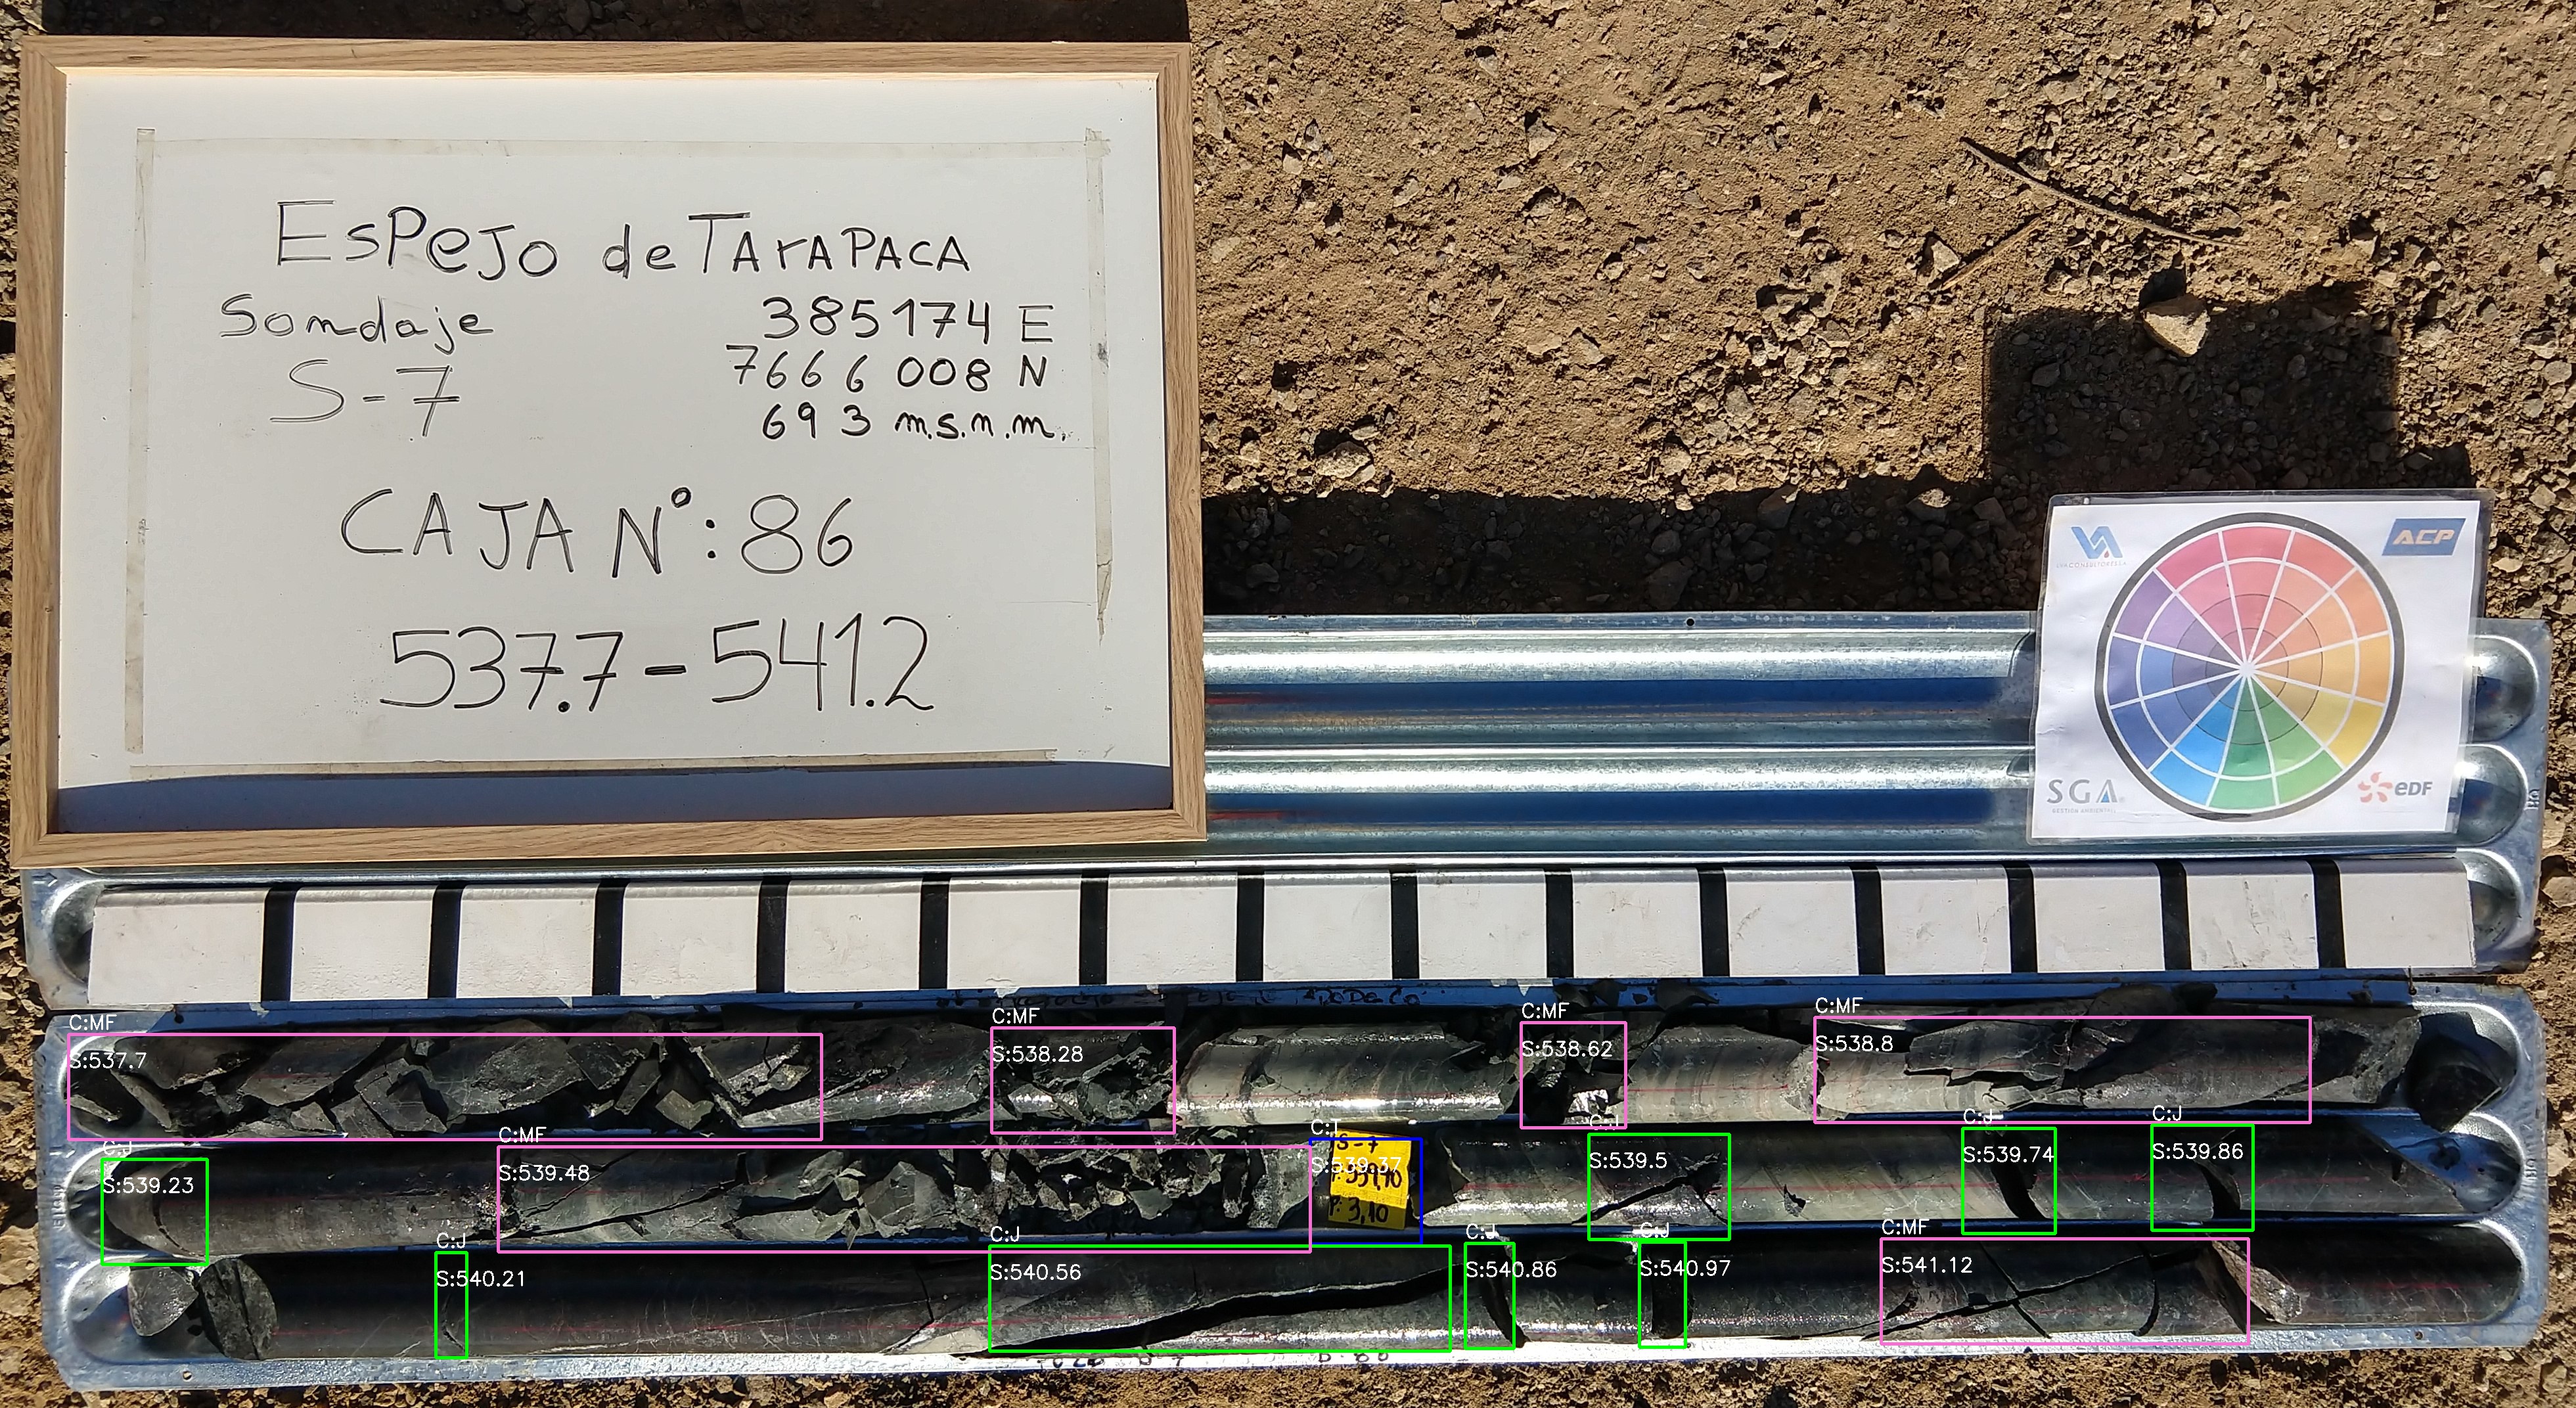 EsPeJo de TArAPACA
Sondaje 385174 E
S-7 7666008 N
693 m.s.n.m.
CAJA N°: 86
537.7 - 541.2
VA
ACP
SGA
eDF
C:MF
S:537.7
C:MF
S:538.28
C:MF
S:538.62
C:MF
S:538.8
C:J
S:539.23
C:MF
S:539.48
C:T
S:539.37
S-7
3,10
C:J
S:539.5
C:J
S:539.74
C:J
S:539.86
C:J
S:540.21
C:J
S:540.56
C:J
S:540.86
C:J
S:540.97
C:MF
S:541.12